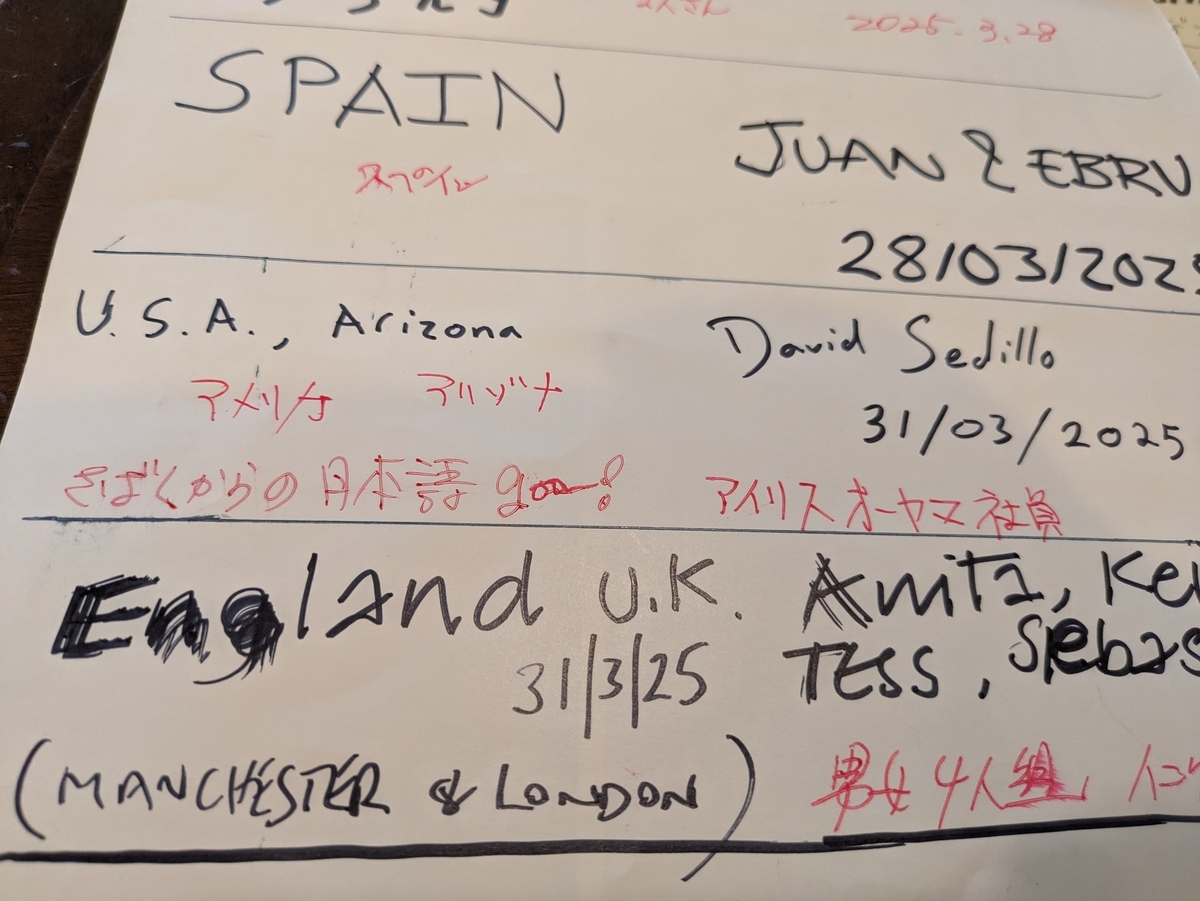 2人さん 2025.3.28
SPAIN
スペイン
JUAN & EBRU
28/03/202
U.S.A., Arizona
アメリカ アリゾナ
David Sedillo
31/03/2025
さばくからの日本語 goo!
アイリスオーヤマ社員
England U.K.
31/3/25
Amita, Kei
TESS, Sebas
(MANCHESTER & LONDON)
男女4人組、